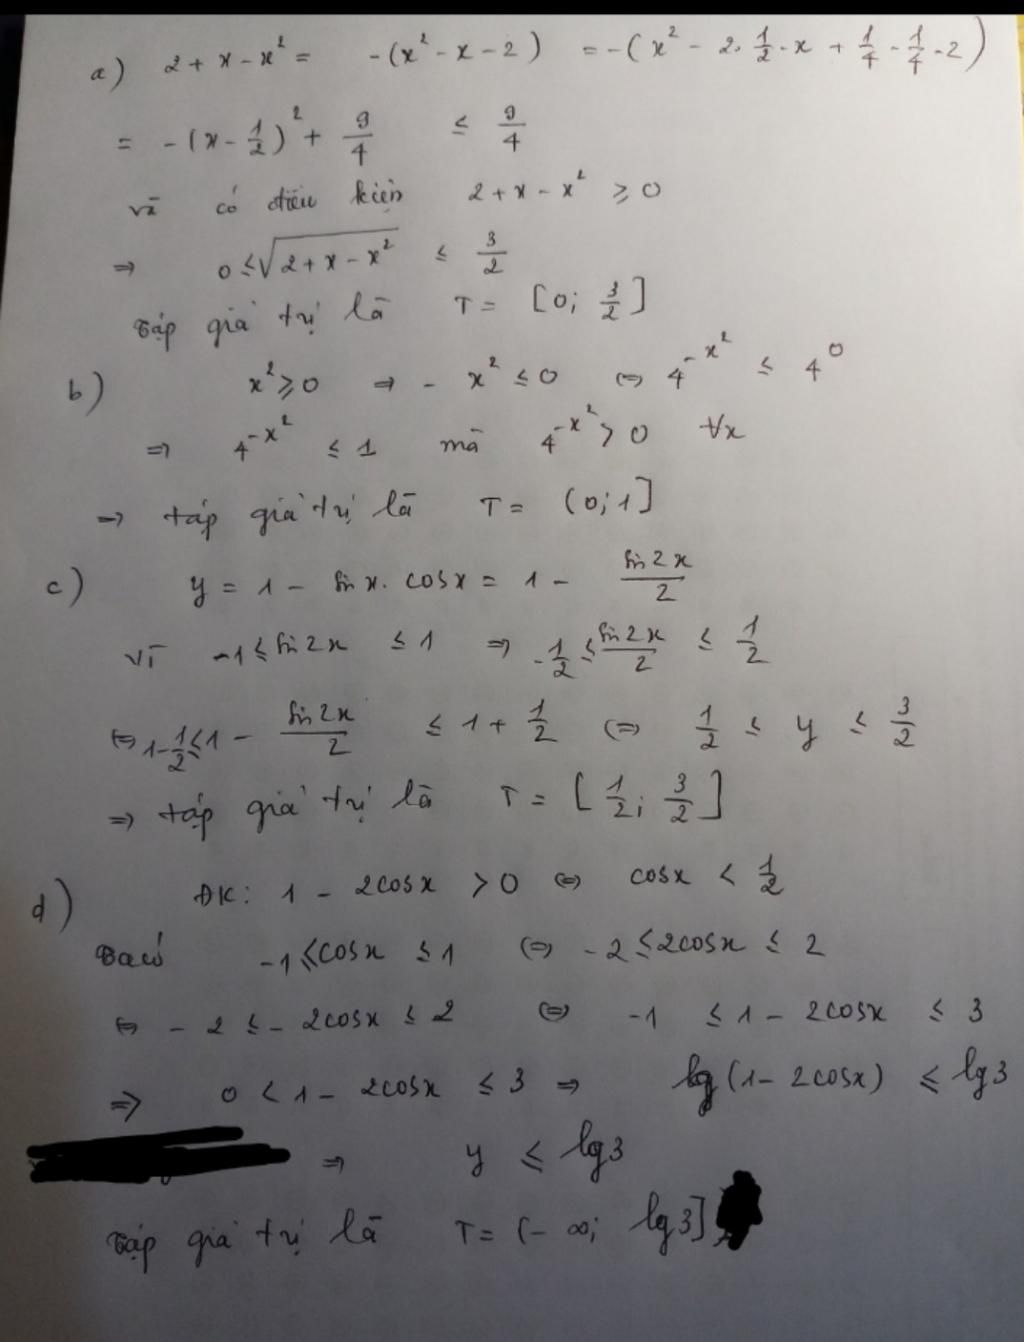 a) 2 + x - x² = -(x² - x - 2) = -(x² - 2.1/2.x + 1/4 - 1/4 - 2)
= -(x - 1/2)² + 9/4 ≤ 9/4
vì có điều kiện 2 + x - x² ≥ 0
⇒ 0 ≤ √(2 + x - x²) ≤ 3/2
Tập giá trị là T = [0; 3/2]
b) x² ≥ 0 ⇒ - x² ≤ 0 ⇔ 4^(-x²) ≤ 4⁰
⇒ 4^(-x²) ≤ 1 mà 4^(-x²) > 0 ∀x
⇒ tập giá trị là T = (0; 1]
c) y = 1 - sin x. cosx = 1 - sin2x/2
vì -1 ≤ sin2x ≤ 1 ⇒ -1/2 ≤ sin2x/2 ≤ 1/2
⇔ 1 - 1/2 ≤ 1 - sin2x/2 ≤ 1 + 1/2 ⇔ 1/2 ≤ y ≤ 3/2
⇒ tập giá trị là T = [1/2; 3/2]
d) ĐK: 1 - 2cosx > 0 ⇔ cosx < 1/2
Ta có -1 ≤ cosx ≤ 1 ⇔ -2 ≤ 2cosx ≤ 2
⇔ -2 ≤ -2cosx ≤ 2 ⇔ -1 ≤ 1 - 2cosx ≤ 3
⇒ 0 < 1 - 2cosx ≤ 3 ⇒ lg(1 - 2cosx) ≤ lg3
⇒ y ≤ lg3
Tập giá trị là T = (-∞; lg3]